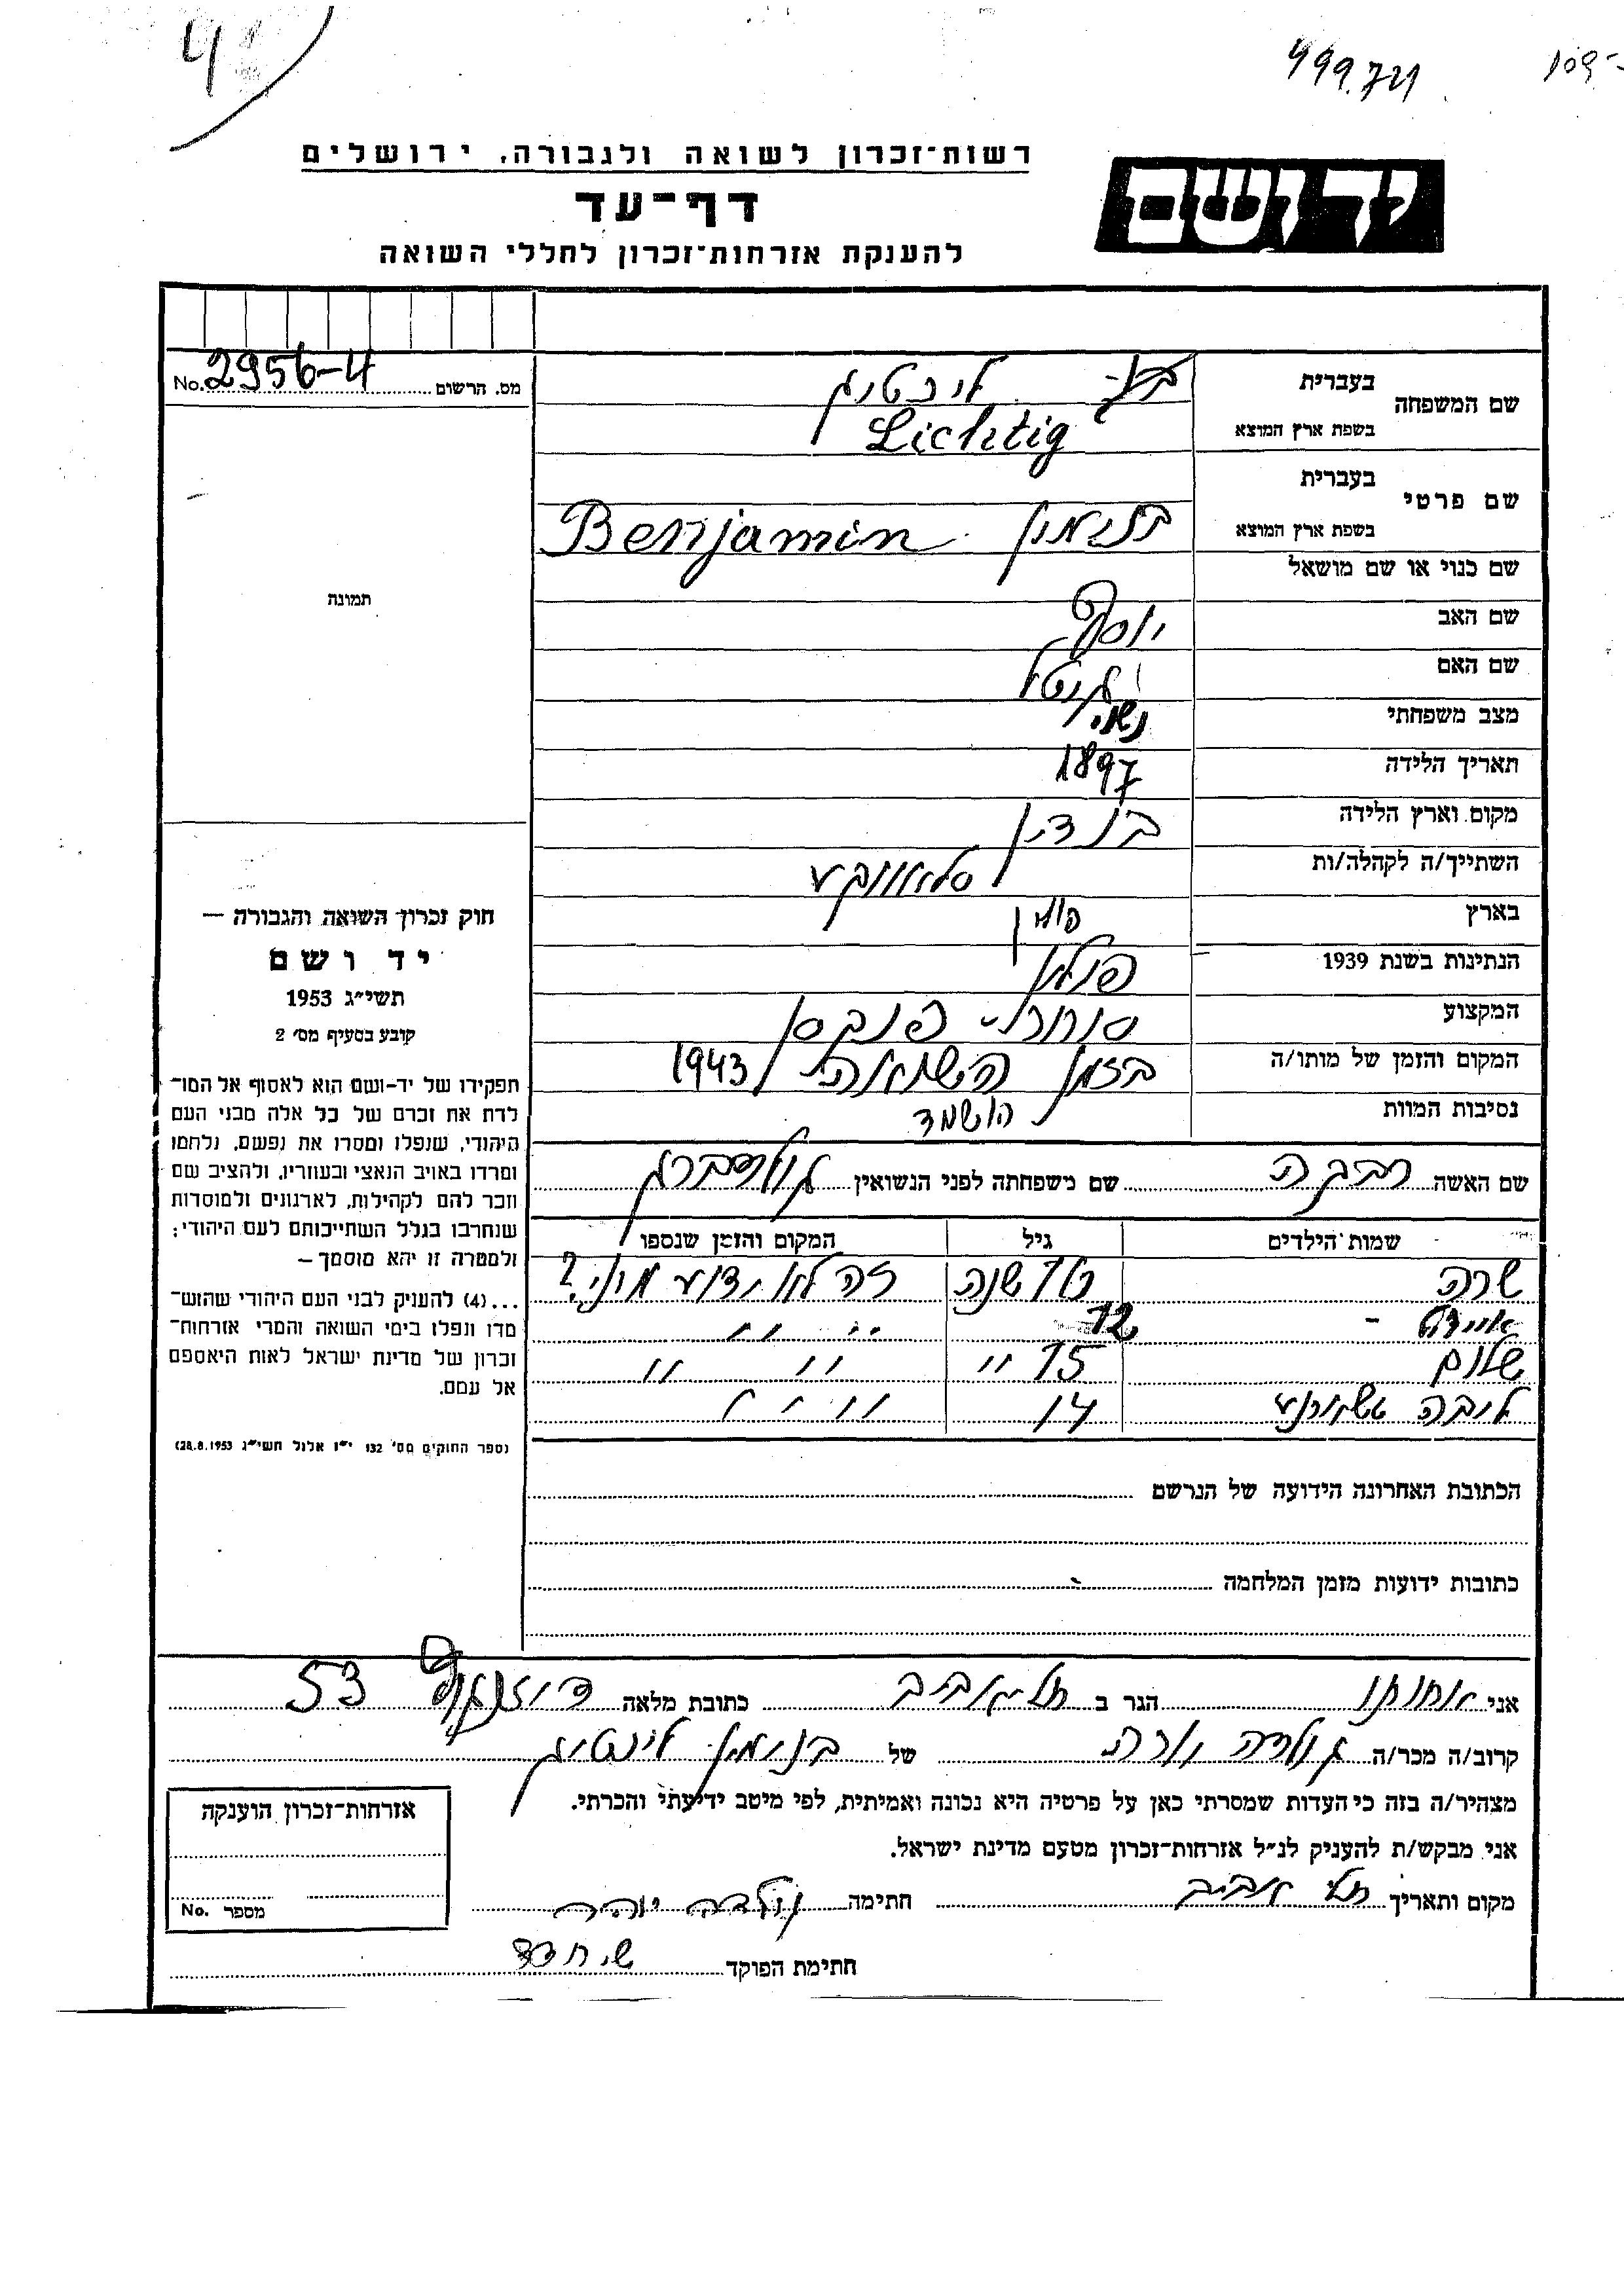 4
499.721
רשות־זכרון לשואה ולגבורה, ירושלים
יד ושם
דף־עד
להענקת אזרחות־זכרון לחללי השואה
מס. הרשום No. 2956-4
שם המשפחה
בעברית ליכטיג
בשפת ארץ המוצא Lichtig
שם פרטי
בעברית
בשפת ארץ המוצא בנימין Benjamin
שם כנוי או שם מושאל
שם האב יוסף
שם האם גיטל
מצב משפחתי נשוי
תאריך הלידה 1897
מקום וארץ הלידה בנדין
השתייך/ה לקהלה/ות
בארץ פולין
הנתינות בשנת 1939 פולין
המקצוע סוחר
המקום והזמן של מותו/ה בזמן השואה 1943
נסיבות המוות הושמד
תמונה
חוק זכרון השואה והגבורה —
יד ושם
תשי״ג 1953
קובע בסעיף מס׳ 2
תפקידו של יד-ושם הוא לאסוף אל המו־
לדת את זכרם של כל אלה מבני העם
היהודי, שנפלו ומסרו את נפשם, נלחמו
ומרדו באויב הנאצי ובעוזריו, ולהציב שם
וזכר להם לקהילות, לארגונים ולמוסדות
שנחרבו בגלל השתייכותם לעם היהודי;
ולמטרה זו יהא מוסמך —
...(4) להעניק לבני העם היהודי שהוש־
מדו ונפלו בימי השואה והמרי אזרחות־
זכרון של מדינת ישראל לאות היאספם
אל עמם.
(ספר החוקים מס׳ 132 י״ז אלול תשי״ג 28.8.1953)
שם האשה רבקה שם משפחתה לפני הנשואין גולדברג
שמות הילדים גיל המקום והזמן שנספו
שרה שנה זה לא ידוע
12 " "
שלום 15 " " "
ליבה 14 " " "
הכתובת האחרונה הידועה של הנרשם
כתובות ידועות מזמן המלחמה
אני אחותו הגר ב תל אביב כתובת מלאה דיזנגוף 53
קרוב/ה מכר/ה גולדה של בנימין ליכטיג
מצהיר/ה בזה כי העדות שמסרתי כאן על פרטיה היא נכונה ואמיתית, לפי מיטב ידיעתי והכרתי.
אני מבקש/ת להעניק לנ״ל אזרחות־זכרון מטעם מדינת ישראל.
מקום ותאריך תל אביב חתימה גולדה
חתימת הפוקד
אזרחות־זכרון הוענקה
מספר No.